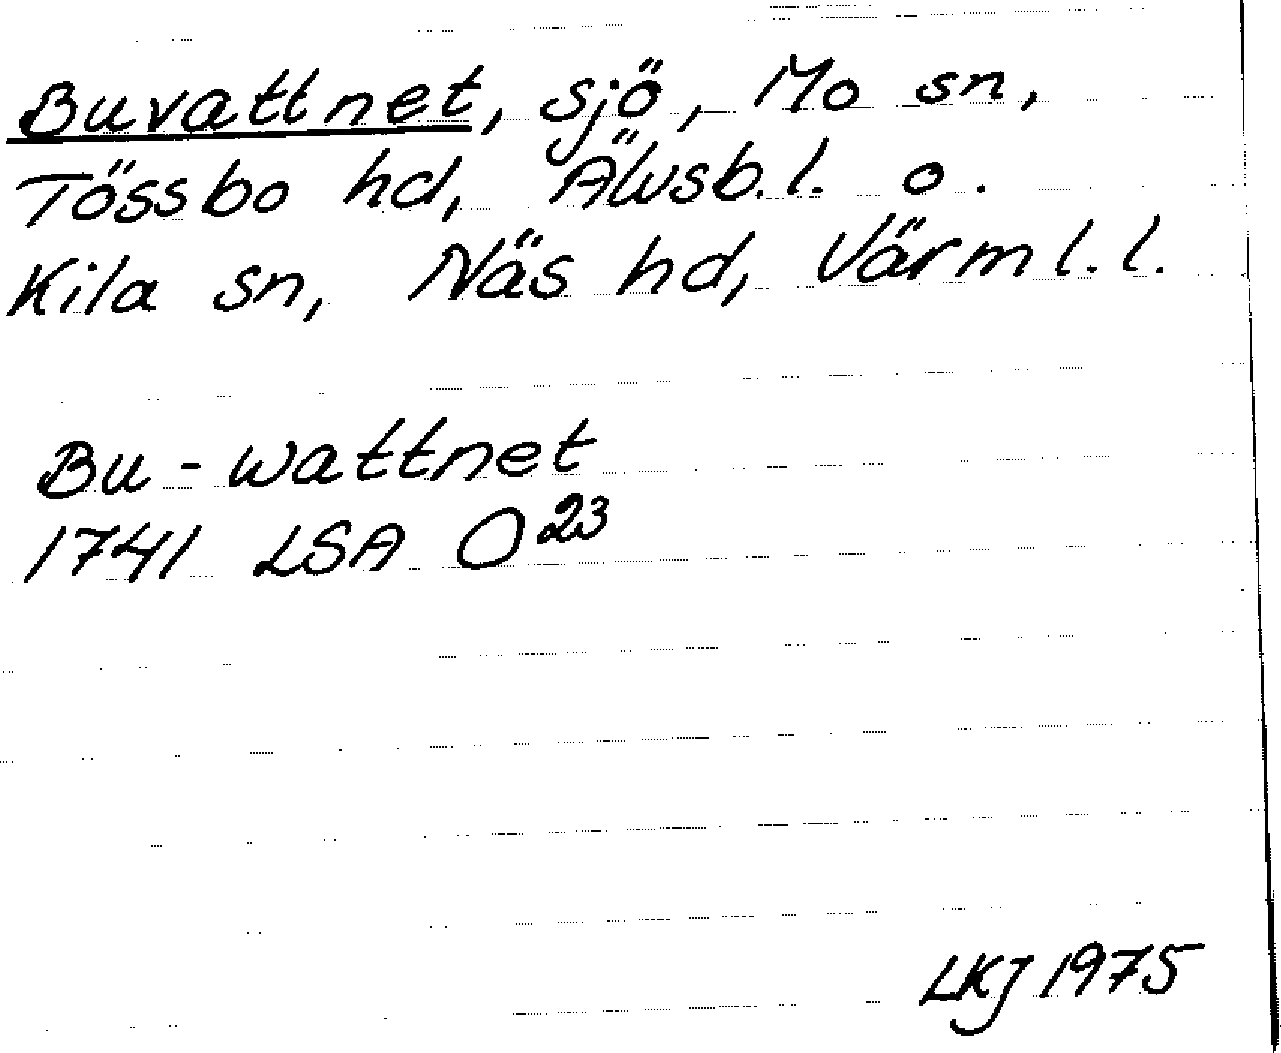 Buvattnet, sjö, Mo sn,
Tössbo hd, Älvsb.l. o.
Kila sn, Näs hd, Värml.l.
Bu-wattnet
1741 LSA O23
LKJ 1975